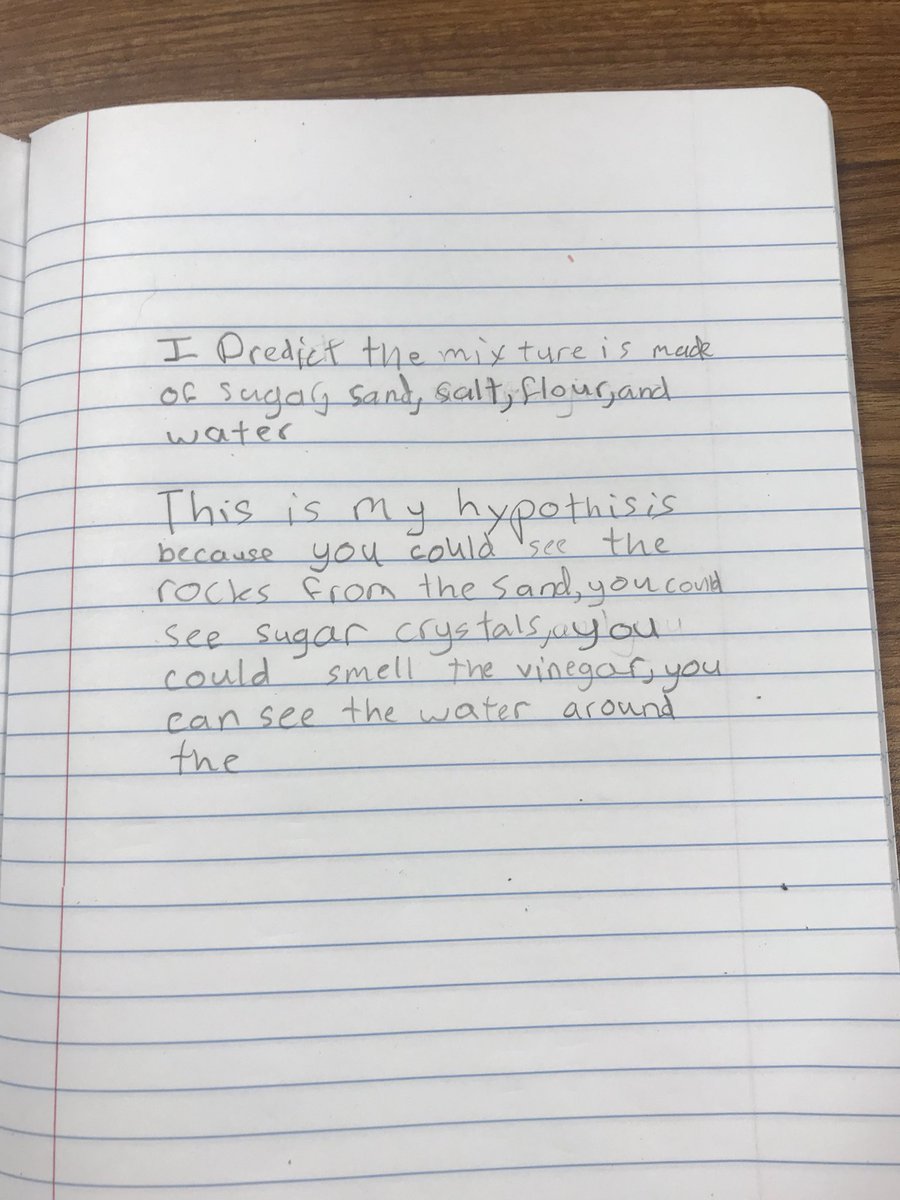 I Predict the mixture is made
of sugar, sand, salt, flour, and
water
This is my hypothisis
because you could see the
rocks from the sand, you could
see sugar crystals, you
could smell the vinegar, you
can see the water around
the